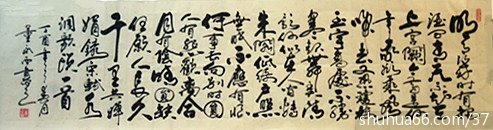 明月几时有
把酒问青天不知天
上宫阙今夕是何
年我欲乘风归
去又恐琼楼
玉宇高处不胜
寒起舞弄清
影何似在人间转
朱阁低绮户照
无眠不应有恨
何事长向别时圆
人有悲欢离合
月有阴晴圆缺
但愿人长久
千里共婵
娟录宋苏轼水
调歌头一首
shuhua66.com/37